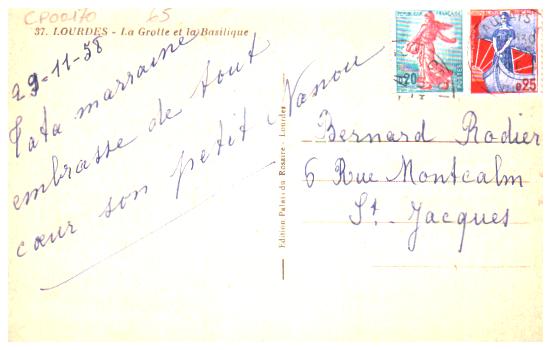 CP00170 65
37. LOURDES - La Grotte et la Basilique
29-11-58
Tata marraine
embrasse de tout
cœur son petit Nanou
Edition Palais du Rosaire - Lourdes
Bernard Rodier
6 Rue Montcalm
St. Jacques
0,20
0,25